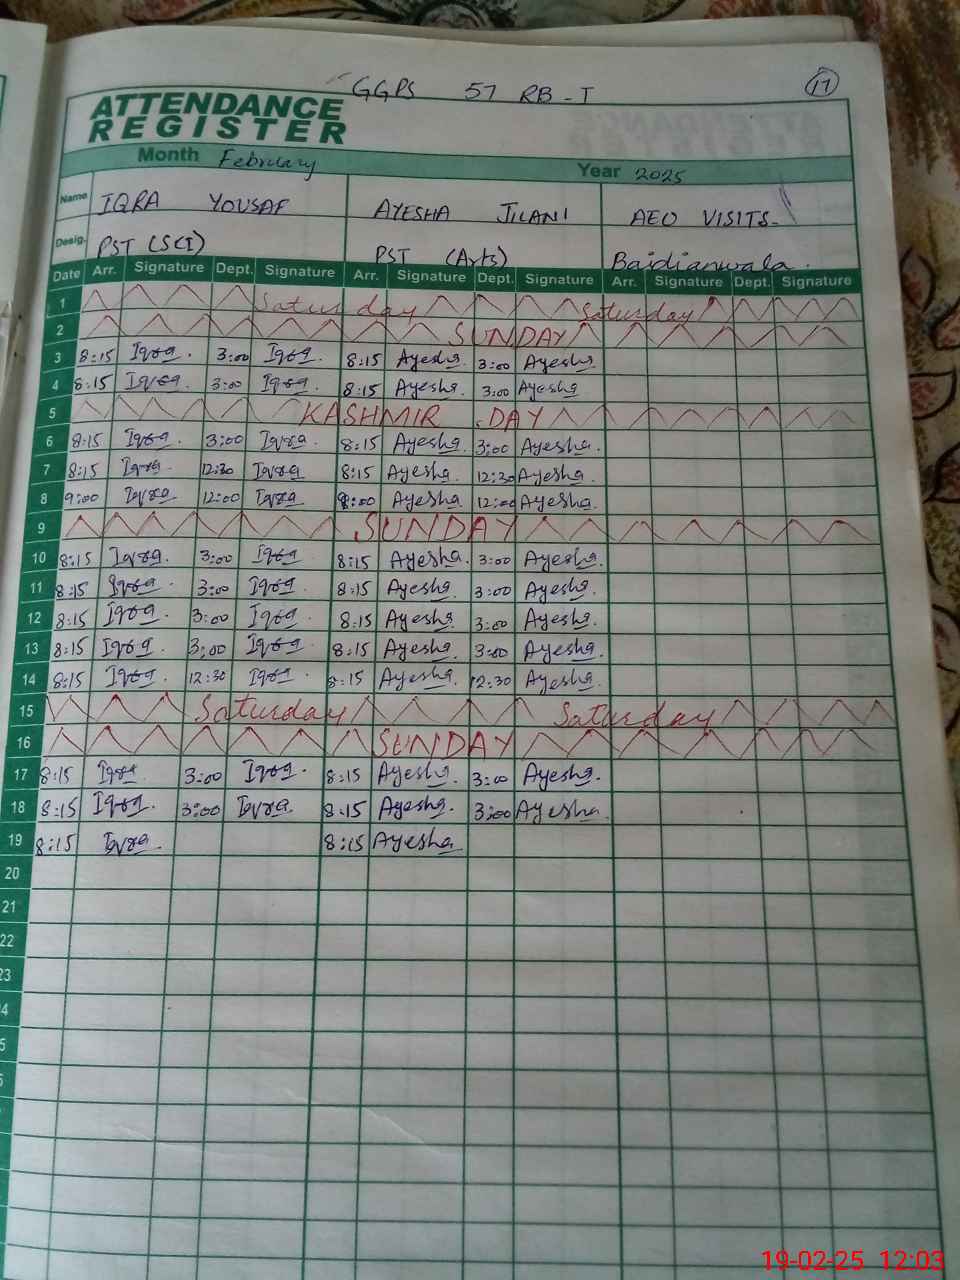 GGPS 57 RB-I 17
ATTENDANCE
REGISTER
Month February Year 2025
Name IQRA YOUSAF AYESHA JILANI AEO VISITS-
Desig. PST (SCI) PST (Arts) Bajdianwala.
Date Arr. Signature Dept. Signature Arr. Signature Dept. Signature Arr. Signature Dept. Signature
1 Saturday Saturday
2 SUNDAY
3 8:15 Iqra. 3:00 Iqra. 8:15 Ayesha. 3:00 Ayesha
4 8:15 Iqra. 3:00 Iqra. 8:15 Ayesha. 3:00 Ayesha
5 KASHMIR DAY
6 8:15 Iqra. 3:00 Iqra 8:15 Ayesha. 3:00 Ayesha.
7 8:15 Iqra 12:30 Iqra 8:15 Ayesha. 12:30 Ayesha.
8 9:00 Iqra 12:00 Iqra 9:00 Ayesha 12:00 Ayesha.
9 SUNDAY
10 8:15 Iqra. 3:00 Iqra 8:15 Ayesha. 3:00 Ayesha.
11 8:15 Iqra. 3:00 Iqra 8:15 Ayesha. 3:00 Ayesha.
12 8:15 Iqra. 3:00 Iqra. 8:15 Ayesha. 3:00 Ayesha.
13 8:15 Iqra. 3:00 Iqra. 8:15 Ayesha. 3:00 Ayesha.
14 8:15 Iqra. 12:30 Iqra. 8:15 Ayesha. 12:30 Ayesha.
15 Saturday Saturday
16 SUNDAY
17 8:15 Iqra 3:00 Iqra. 8:15 Ayesha. 3:00 Ayesha.
18 8:15 Iqra. 3:00 Iqra. 8:15 Ayesha. 3:00 Ayesha.
19 8:15 Iqra. 8:15 Ayesha.
20
21
22
23
4
5
19-02-25 12:03